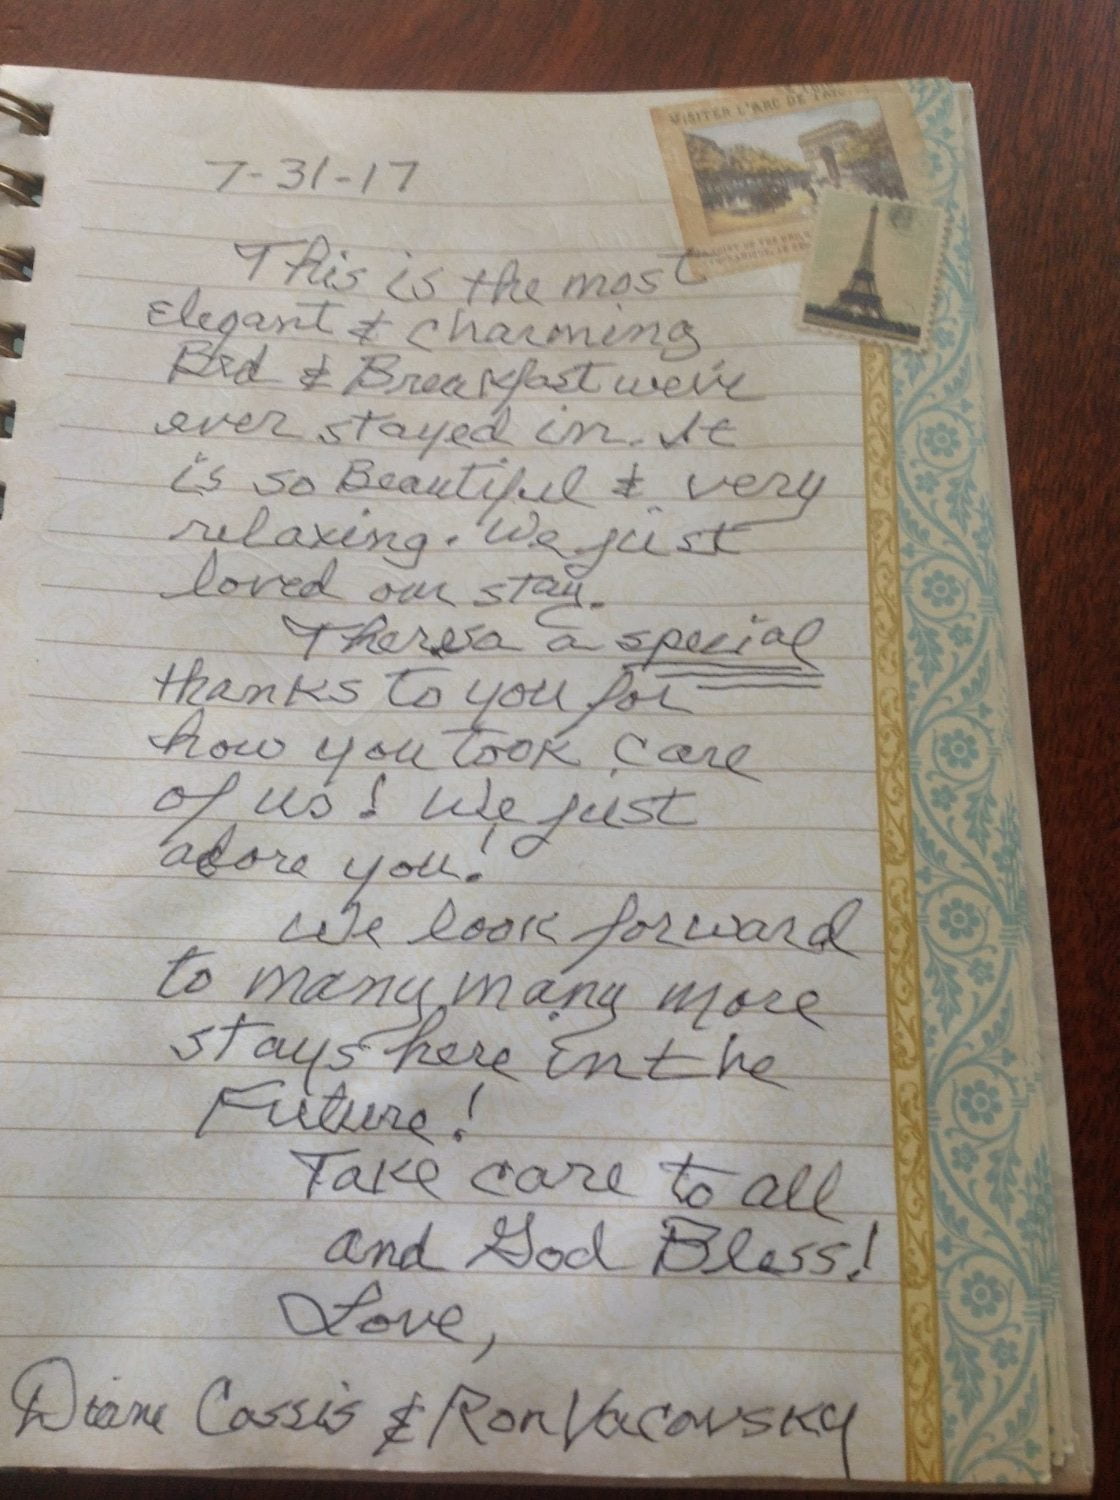 VISITER L'ARC DE
7-31-17
This is the most
Elegant & charming
Bed & Breakfast we've
ever stayed in. It
is so Beautiful & very
relaxing. We just
loved our stay.
Theresa a special
thanks to you for
how you took care
of us! We just
adore you!
We look forward
to many, many more
stays here in the
Future!
Take care to all
and God Bless!
Love,
Diane Cassis & Ron Vacovsky